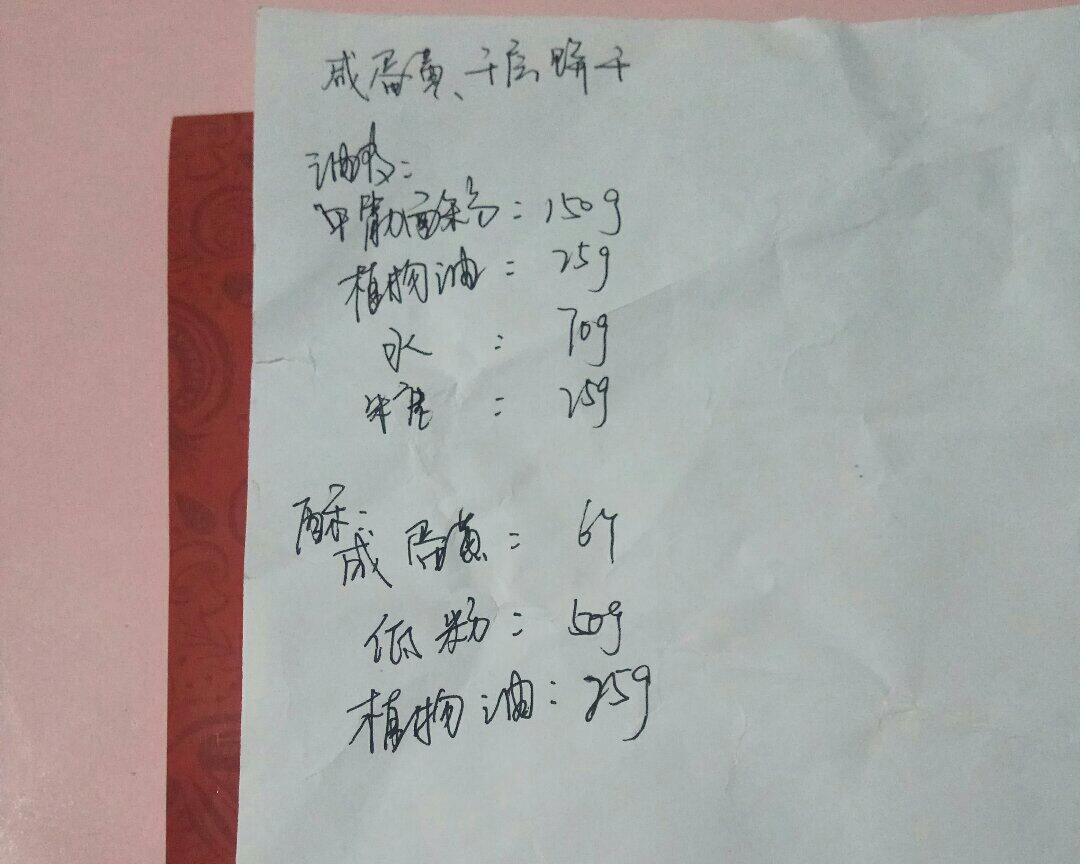 咸蛋黄、千层饼干
油皮:
中筋面粉: 150g
植物油: 25g
水: 70g
糖: 25g
酥:
咸蛋黄: 6个
低粉: 50g
植物油: 25g